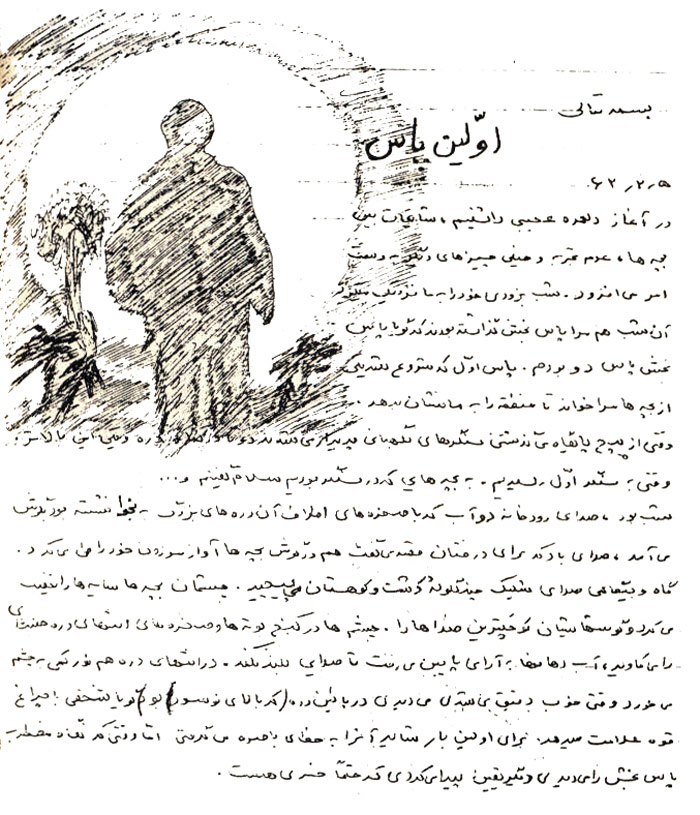 بسمه تعالی
اولین پاس
۶۲/۲/۵
در آغاز دلهره عجیبی داشتیم، شایعات بین
بچه ها، عدم تجربه و خیلی چیزهای دیگر به وحشت
امر می افزود. شب بزودی خود را به ما نزدیک میکرد
آن شب هم مرا پاس بخش گذاشته بودند که گویا پاس
بخش پاس دو بودم. پاس اول که شروع شد یکی
از بچه ها مرا خواند تا منطقه را به ما نشان بدهد.
وقتی از پیچ پایگاه می گذشتی سنگرهای نگهبانی پدیدار می شدند دو تا در دره و یکی این بالا
وقتی به سنگر اول رسیدیم. به بچه هایی که در سنگر بودیم سلام گفتیم و...
شب بود، صدای رودخانه دوآب که با صخره های اطراف آن دره های بزرگ به نجوا نشسته بود بگوش
می آمد، صدای باد که برای درختان قصه می گفت هم در گوش بچه ها آواز سوزدن خود را می کرد.
گاه و بیگاهی صدای شلیک چند گلوله در دشت و کوهستان می پیچید. چشمان بچه ها سایه ها را تعقیب
می کرد و گوشهایشان کوچکترین صدا را. چشم ها در کنج بوته ها و صخره های انتهای دره چیزی
را می کاوید، آب دهانها به آرامی پایین می رفت تا صدایی بلند نکند. در انتهای دره هم نور کمی به چشم
می خورد وقتی خوب دقیق می شدی می دیدی در پائین دره (که بالای نوسود) بود گویا شخصی با چراغ
قوه علامت میدهد. برای اولین بار شاید آنرا به خطای باصره می گرفتی اما وقتی که نگاه مضطرب
پاس بخش را می دیدی دیگر یقین پیدا می کردی که حتماً خبری هست.